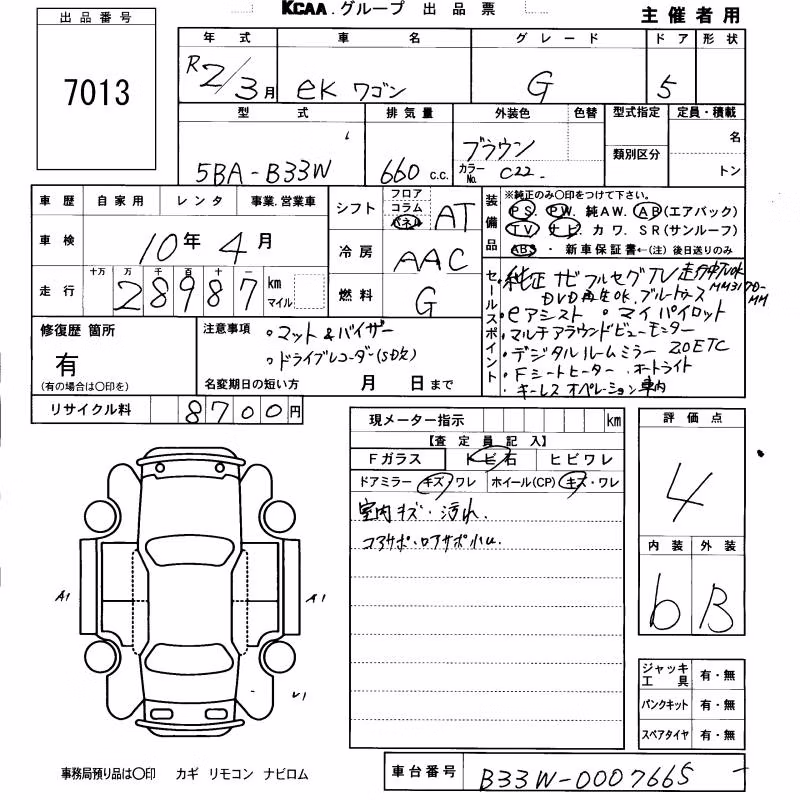 KCAA.グループ 出品票
主催者用
出品番号
7013
年式 車名 グレード ドア 形状
R2/3月 eK ワゴン G 5
型式 排気量 外装色 色替 型式指定 定員・積載
5BA-B33W 660 c.c. ブラウン カラーNo. C22 類別区分 名 トン
車歴 自家用 レンタ 事業.営業車
車検 10年4月
走行 十万 万 千 百 十 一
28987 km マイル
シフト フロア コラム パネル AT
冷房 AAC
燃料 G
装備品
※純正のみ○印をつけて下さい。
PS. PW. 純AW. AB(エアバック)
TV・ナビ カワ. SR(サンルーフ)
ABS・新車保証書←(注)後日送りのみ
セールスポイント
・純正ナビ フルセグTV 走行中TVOK
DVD再生OK.ブルートゥース MM317D-MM
・eアシスト ・マイパイロット
・マルチアラウンドビューモニター
・デジタルルームミラー 2.0ETC
・Fシートヒーター ・オートライト
・キーレスオペレーション 車内
修復歴 箇所
有
(有の場合は○印を)
注意事項
・マット&バイザー
・ドライブレコーダー(SD欠)
名変期日の短い方 月 日まで
リサイクル料 8700円
現メーター指示 km
【査定員記入】
Fガラス トビ石 ヒビワレ
ドアミラー キズ・ワレ ホイール(CP) キズ・ワレ
室内キズ・汚れ.
コアサポ・ロアサポ小U
評価点
4
内装 外装
b B
A1 A1
√1
ジャッキ工具 有・無
パンクキット 有・無
スペアタイヤ 有・無
事務局預り品は○印 カギ リモコン ナビロム
車台番号 B33W-0007665